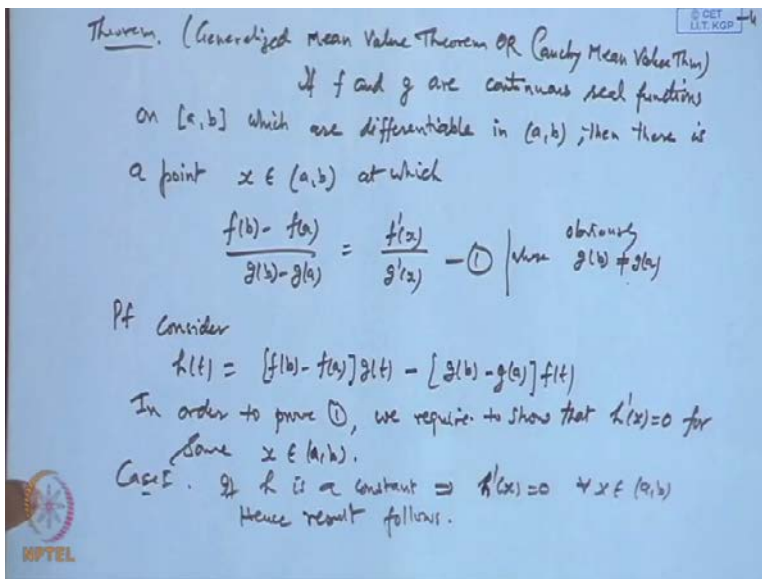 © CET
I.I.T. KGP
Theorem. (Generalized Mean Value Theorem OR Cauchy Mean Value Thm)
If f and g are continuous real functions
on [a,b] which are differentiable in (a,b), then there is
a point x ∈ (a,b) at which
f(b) - f(a) / g(b) - g(a) = f'(x) / g'(x) — ① | where obviously g(b) ≠ g(a)
Pf Consider
h(t) = [f(b) - f(a)] g(t) - [g(b) - g(a)] f(t)
In order to prove ①, we require to show that h'(x) = 0 for
some x ∈ (a,b).
Case I. If h is a constant ⇒ h'(x) = 0 ∀ x ∈ (a,b)
Hence result follows.
NPTEL